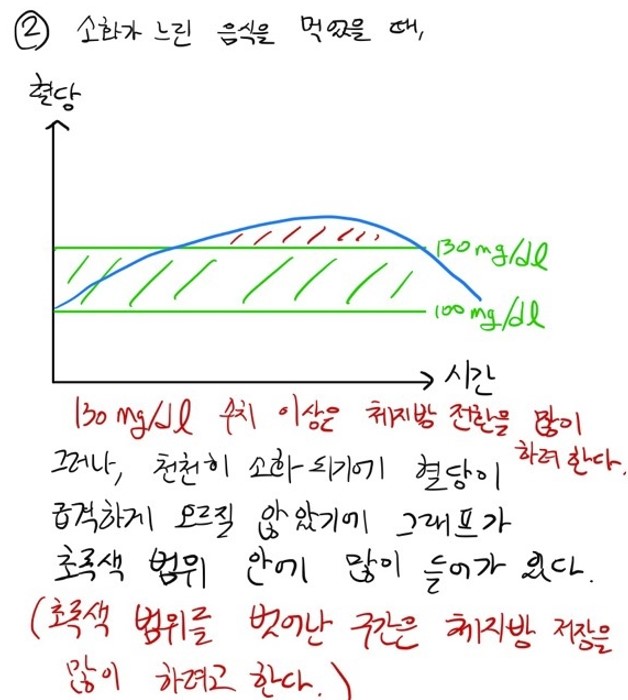 ② 소화가 느린 음식을 먹었을 때,
혈당
130 mg/dl
100 mg/dl
시간
130 mg/dl 수치 이상은 체지방 전환을 많이
하려 한다.
그러나, 천천히 소화되기에 혈당이
급격하게 오르질 않았기에 그래프가
초록색 범위 안에 많이 들어가 있다.
(초록색 범위를 벗어난 구간은 체지방 저장을
많이 하려고 한다.)